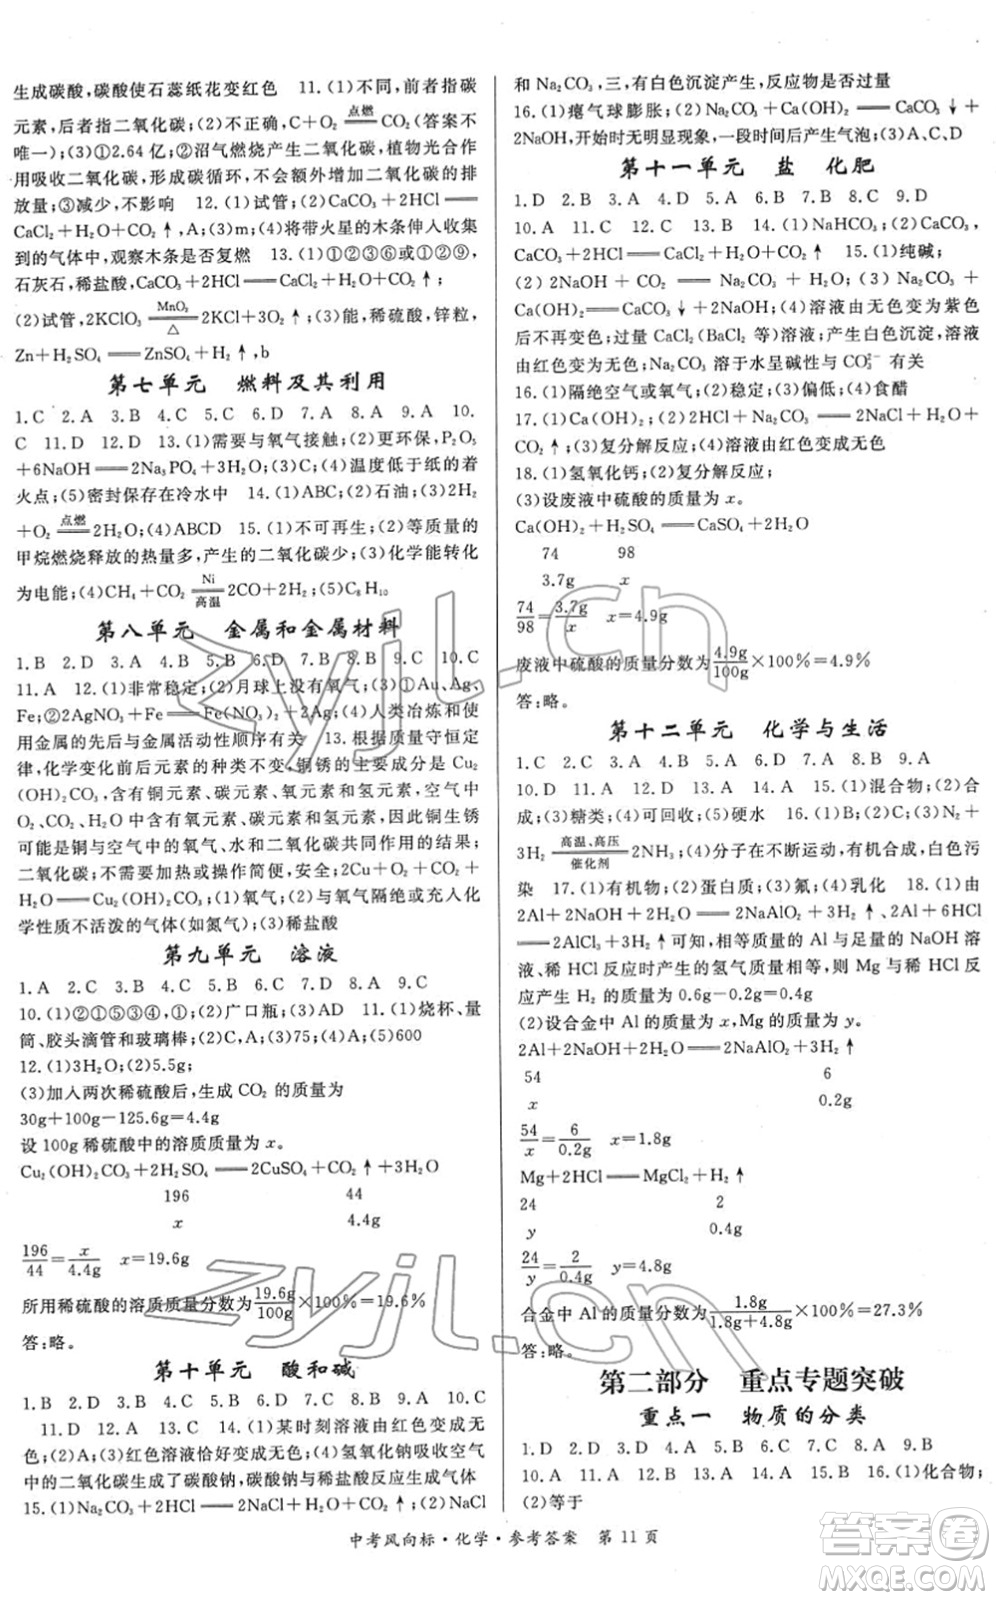 生成碳酸,碳酸使石蕊纸花变红色 11.(1)不同,前者指碳
元素,后者指二氧化碳;(2)不正确,C+O₂ 点燃 CO₂(答案不
唯一);(3)①2.64 亿;②沼气燃烧产生二氧化碳,植物光合作
用吸收二氧化碳,形成碳循环,不会增加二氧化碳的相对排
放量;③减少,不影响 12.(1)试管;(2)CaCO₃+2HCl══
CaCl₂+H₂O+CO₂↑,A;(3)m;(4)将带火星的木条伸入收集
到的气体中,观察木条是否复燃 13.(1)①②③⑥或①②⑨,
石灰石,稀盐酸,CaCO₃+2HCl══CaCl₂+H₂O+CO₂↑;
(2)试管,2KClO₃ MnO₂ △ 2KCl+3O₂↑;(3)能,稀硫酸,锌粒,
Zn+H₂SO₄══ZnSO₄+H₂↑,b
第七单元 燃料及其利用
1.C 2.A 3.B 4.C 5.C 6.D 7.D 8.A 9.A 10.
C 11.D 12.D 13.(1)需要与氧气接触;(2)更环保,P₂O₅
+6NaOH══2Na₃PO₄+3H₂O;(4)温度低于纸的着
火点;(5)密封保存在冷水中 14.(1)ABC;(2)石油;(3)2H₂
+O₂ 点燃 2H₂O;(4)ABCD 15.(1)不可再生;(2)等质量的
甲烷燃烧释放的热量多,产生的二氧化碳少;(3)化学能转化
为电能;(4)CH₄+CO₂ Ni 高温 2CO+2H₂;(5)C₈H₁₀
第八单元 金属和金属材料
1.B 2.D 3.A 4.B 5.B 6.B 7.B 8.B 9.C 10.C
11.A 12.(1)非常稳定;(2)月球上没有氧气;(3)①Au、Ag、
Fe;②2AgNO₃+Fe══Fe(NO₃)₂+2Ag;(4)人类冶炼和使
用金属的先后与金属活动性顺序有关 13.根据质量守恒定
律,化学变化前后元素的种类不变,铜锈的主要成分是Cu₂
(OH)₂CO₃,含有铜元素、碳元素、氧元素和氢元素,空气中
O₂、CO₂、H₂O中含有氧元素、碳元素和氢元素,因此铜生锈
可能是铜与空气中的氧气、水和二氧化碳共同作用的结果;
二氧化碳;操作简便,可行性高,安全;2Cu+O₂+CO₂+
H₂O══Cu₂(OH)₂CO₃;(1)氧气;(2)与氧气隔绝或充入化
学性质不活泼的气体(如氮气);(3)稀盐酸
第九单元 溶液
1.A 2.C 3.B 4.D 5.B 6.D 7.A 8.D 9.C
10.(1)②①⑤③④,①;(2)广口瓶;(3)AD 11.(1)烧杯、量
筒、胶头滴管和玻璃棒;(2)C,A;(3)75;(4)A;(5)600
12.(1)H₂O;(2)5.5g;
(3)加入两次稀硫酸后,生成CO₂的质量为
30g+100g-125.6g=4.4g
设100g稀硫酸中的溶质质量为x。
Cu₂(OH)₂CO₃+2H₂SO₄══2CuSO₄+CO₂↑+3H₂O
196 44
x 4.4g
196/44=x/4.4g x=19.6g
所用稀硫酸的溶质质量分数为19.6g/100g×100%=19.6%
答:略。
第十单元 酸和碱
1.B 2.D 3.A 4.D 5.C 6.B 7.A 8.C 9.D 10.C
11.D 12.D 13.C 14.(1)某时刻溶液由红色变成无
色;(2)A;(3)红色溶液恰好变成无色;(4)氢氧化钠吸收空气
中的二氧化碳生成了碳酸钠,碳酸钠与稀盐酸反应生成气体
15.(1)Na₂CO₃+2HCl══2NaCl+H₂O+CO₂↑;(2)NaCl
和Na₂CO₃,三,有白色沉淀产生,反应物是否过量
16.(1)瘪气球膨胀;(2)Na₂CO₃+Ca(OH)₂══CaCO₃↓+
2NaOH,开始时无明显现象,一段时间后产生气泡;(3)A、C、D
第十一单元 盐 化肥
1.D 2.B 3.A 4.D 5.A 6.D 7.B 8.C 9.D
10.A 11.D 12.C 13.A 14.(1)NaHCO₃;(2)CaCO₃,
CaCO₃+2HCl══CaCl₂+H₂O+CO₂↑ 15.(1)纯碱;
(2)2NaOH+CO₂══Na₂CO₃+H₂O;(3)Na₂CO₃+
Ca(OH)₂══CaCO₃↓+2NaOH;(4)溶液由无色变为紫色
后不再变色;过量CaCl₂(BaCl₂等)溶液;产生白色沉淀,溶
液由红色变为无色;Na₂CO₃溶于水呈碱性与CO₃²⁻有关
16.(1)隔绝空气或氧气;(2)稳定;(3)偏低;(4)食醋
17.(1)Ca(OH)₂;(2)2HCl+Na₂CO₃══2NaCl+H₂O+
CO₂↑;(3)复分解反应;(4)溶液由红色变成无色
18.(1)氢氧化钙;(2)复分解反应;
(3)设废液中硫酸的质量为x。
Ca(OH)₂+H₂SO₄══CaSO₄+2H₂O
74 98
3.7g x
74/98=3.7g/x x=4.9g
废液中硫酸的质量分数为4.9g/100g×100%=4.9%
答:略。
第十二单元 化学与生活
1.C 2.C 3.D 4.C 5.A 6.D 7.B 8.D 9.A
10.D 11.A 12.D 13.A 14.A 15.(1)混合物;(2)合
成;(3)糖类;(4)复写;(5)硬水 16.(1)B;(2)C;(3)N₂+
3H₂ 高温、高压 催化剂 2NH₃;(4)分子在不断运动,有机合成,白色污
染 17.(1)有机物;(2)蛋白质;(3)氟;(4)乳化 18.(1)由
2Al+2NaOH+2H₂O══2NaAlO₂+3H₂↑和2Al+6HCl
══2AlCl₃+3H₂↑可知,相同质量的Al与足量的NaOH溶
液、稀HCl反应时产生的氢气质量相等,则Mg与稀HCl反
应产生H₂的质量为0.6g-0.2g=0.4g
(2)设合金中Al的质量为x,Mg的质量为y。
2Al+2NaOH+2H₂O══2NaAlO₂+3H₂↑
54 6
x 0.2g
54/x=6/0.2g x=1.8g
Mg+2HCl══MgCl₂+H₂↑
24 2
y 0.4g
24/y=2/0.4g y=4.8g
合金中Al的质量分数为1.8g/1.8g+4.8g×100%=27.3%
答:略。
第二部分 重点专题突破
重点一 物质的分类
1.D 2.D 3.D 4.B 5.B 6.D 7.C 8.A 9.B
10.A 11.C 12.A 13.B 14.A 15.B 16.(1)化合物;
(2)等于
中考风向标·化学·参考答案 第 11 页
zyjl.cn
zyjl.cn
作业精灵